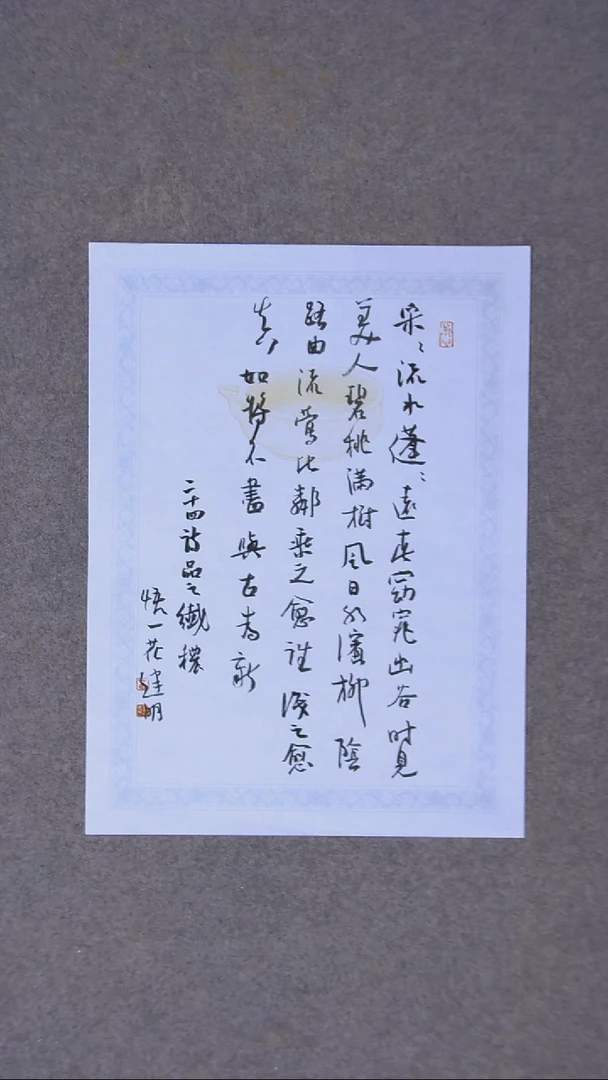 采〻流水蓬〻遠春窈窕幽谷时見
美人碧桃满樹風日水濱柳陰
路曲流鶯比鄰乘之愈往識之愈
真如将不盡與古為新
二十四詩品之纖穠
悟一花建明